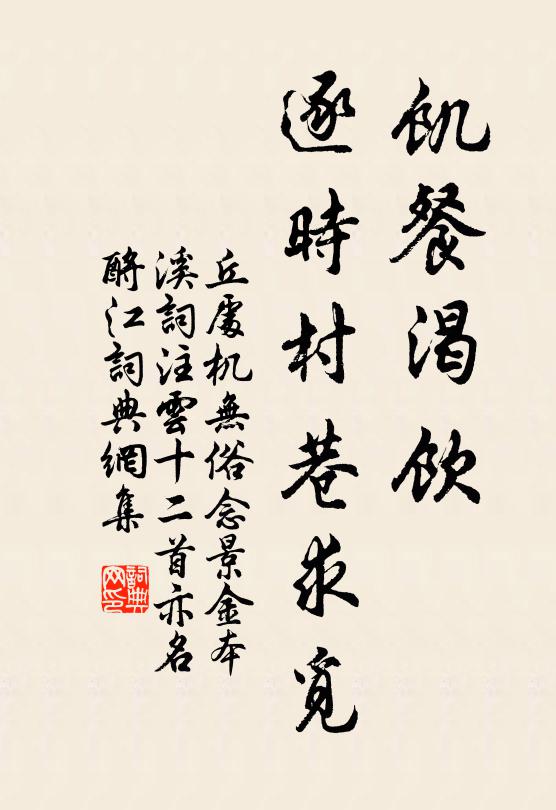 飢餐渴飲
逐時村巷求覓
丘處机無俗念景金本
溪詞注雲十二首亦名
酹江詞典網集
詞典
网印